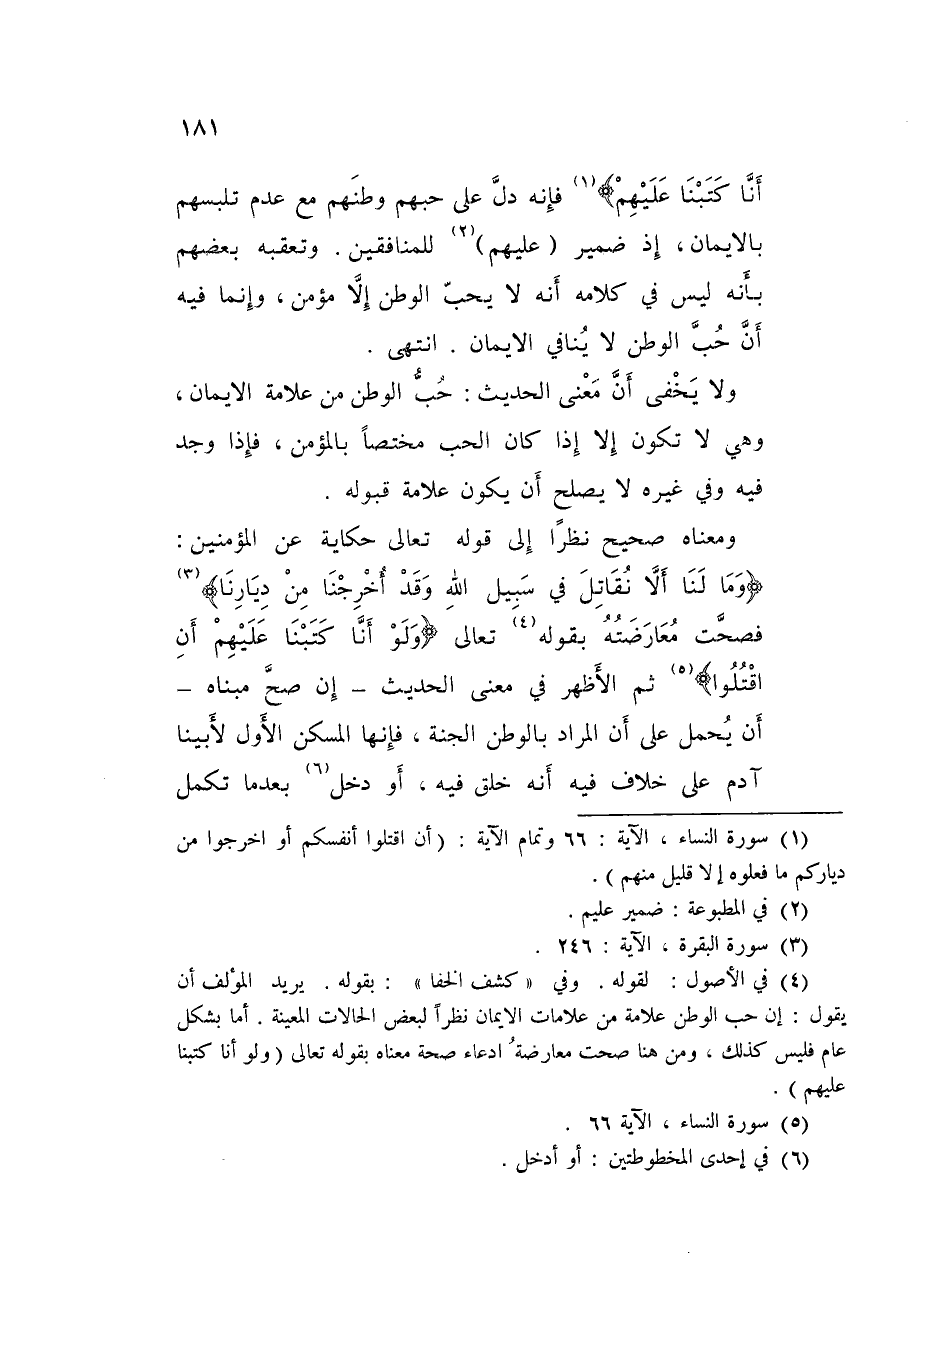 ١٨١
أَنَّا كَتَبْنَا عَلَيْهِمْ﴾(١) فإنه دلَّ على حبهم وطنَهم مع عدم تلبسهم
بالايمان ، إذ ضمير ( عليهم )(٢) للمنافقين . وتعقبه بعضهم
بأنه ليس في كلامه أنه لا يحبّ الوطن إلَّا مؤمن ، وإنما فيه
أنَّ حُبَّ الوطن لا يُنافي الايمان . انتهى .
ولا يَخْفى أنَّ مَعْنى الحديث : حُبُّ الوطن من علامة الايمان ،
وهي لا تكون إلا إذا كان الحب مختصاً بالمؤمن ، فإذا وجد
فيه وفي غيره لا يصلح أن يكون علامة قبوله .
ومعناه صحيح نظرًا إلى قوله تعالى حكاية عن المؤمنين :
﴿وَمَا لَنَا أَلَّا نُقَاتِلَ في سَبِيل اللهِ وَقَدْ أُخْرِجْنَا مِنْ دِيَارِنَا﴾(٣)
فصحَّت مُعَارَضَتُهُ بقوله(٤) تعالى ﴿وَلَوْ أَنَّا كَتَبْنَا عَلَيْهِمْ أَنِ
اقْتُلُوا﴾(٥) ثم الأَظهر في معنى الحديث – إن صحَّ مبناه –
أن يُحمل على أن المراد بالوطن الجنة ، فإنها المسكن الأَول لأَبينا
آدم على خلاف فيه أنه خلق فيه ، أو دخل(٦) بعدما تكمل
(١) سورة النساء ، الآية : ٦٦ وتمام الآية : ( أن اقتلوا أنفسكم أو اخرجوا من
دياركم ما فعلوه إلا قليل منهم ) .
(٢) في المطبوعة : ضمير عليم .
(٣) سورة البقرة ، الآية : ٢٤٦ .
(٤) في الأصول : لقوله . وفي « كشف الخفا » : بقوله . يريد المؤلف أن
يقول : إن حب الوطن علامة من علامات الايمان نظراً لبعض الحالات المعينة . أما بشكل
عام فليس كذلك ، ومن هنا صحت معارضةُ ادعاء صحة معناه بقوله تعالى ( ولو أنا كتبنا
عليهم ) .
(٥) سورة النساء ، الآية ٦٦ .
(٦) في إحدى المخطوطتين : أو أدخل .